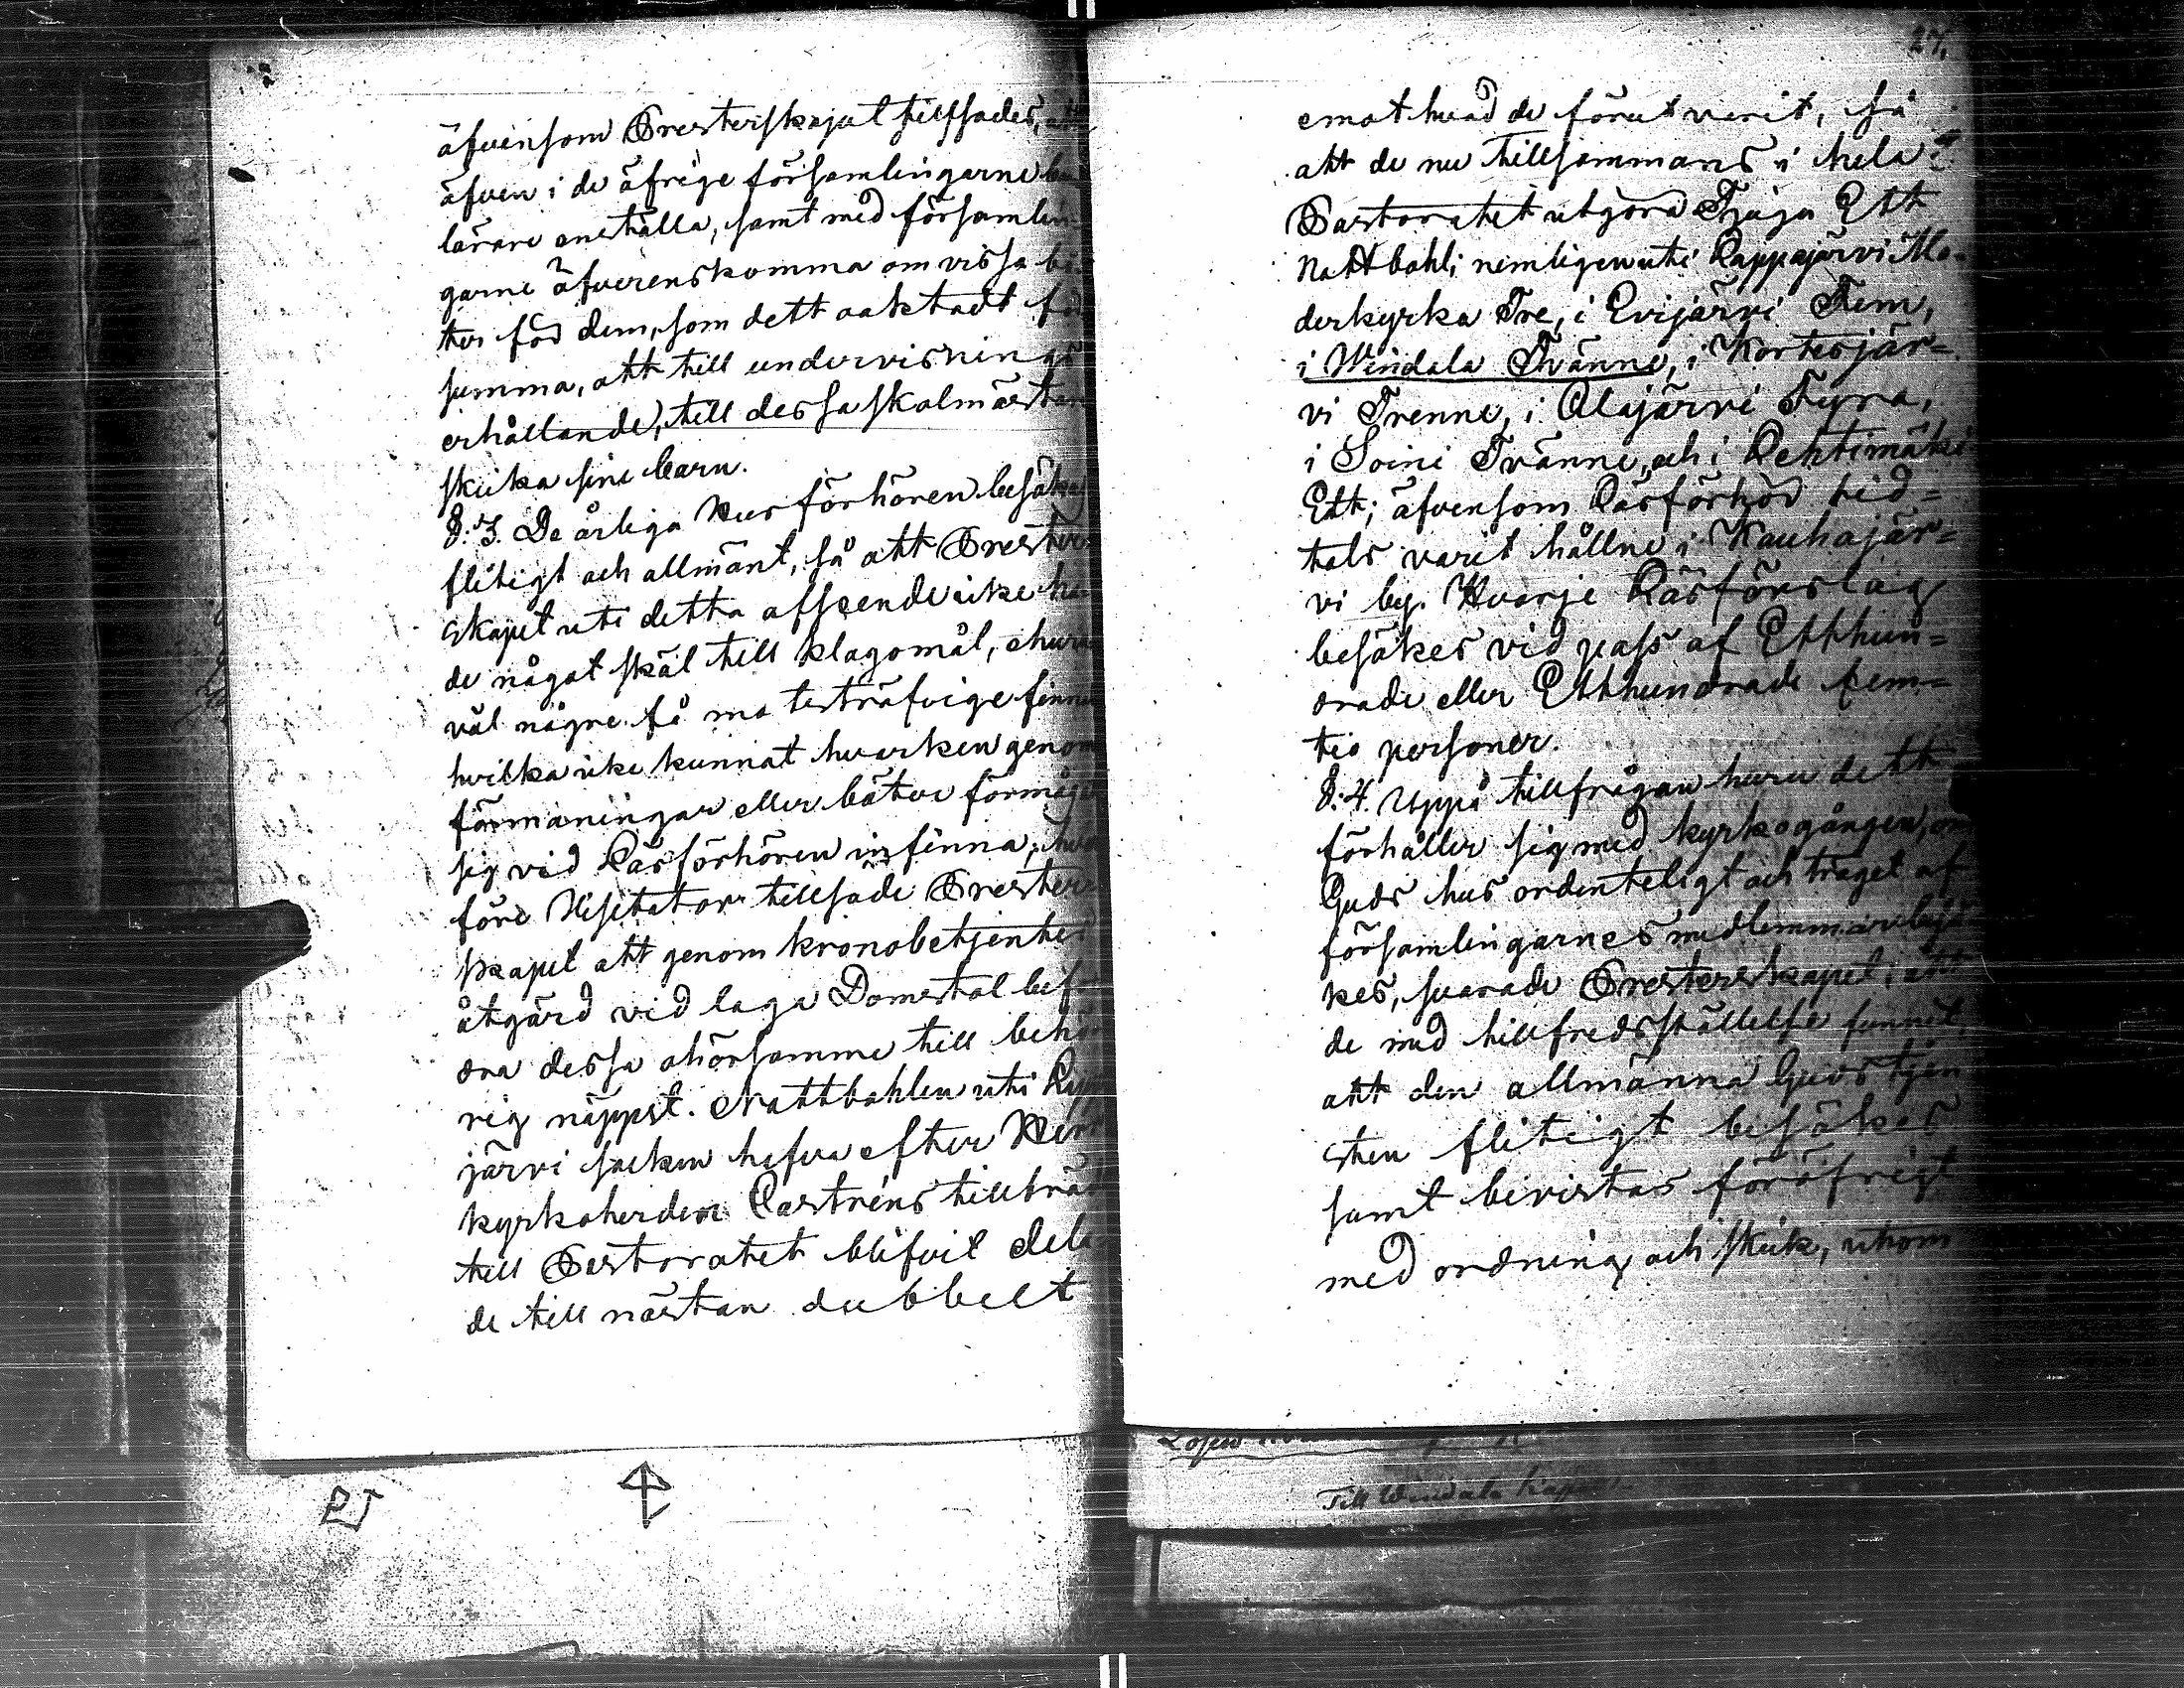 äfvensom Presterskapet tillsades, att
äfven i de öfrige församlingarne
lärare anställa, samt med församlin-
garne öfverenskomma om vissa bö-
ter för dem, som dett oaktadt för
summa, att till undervisnings
erhållande, till dessa skolmästare
skicka sine barn.
§: 3. De årliga Husförhören besökas
flitigt och allmänt, så att Prester-
skapet uti detta afseende icke ha-
de något skäl till klagomål, churu
väl några få motsträfvige finnas
hvilka icke kunnat hvarken genom
förmaningar eller böter förmås
sig vid Läsförhören infinna; hvar-
före Visitator tillsade Prester-
skapet att genom kronobetjenter
åtgärd vid laga Domstol bef
dra dessa ohörsamme till behö-
rig näppst. Nattbohlen uti Lap
järvi socken hafva efter Herr
kyrkoherden Castréns tillträde
till Pastoratet blifvit dela-
de till nästan dubbelt
27.
emot hvad de förut varit, så
att de nu tillsammans i hela
Pastoratet utgöra Tjugu Ett
Nattbohl; nemligen uti Lappajärvi Mo-
derkyrka Tre, i Evijärvi Fem,
i Windala Tvänne, i Kortesjär=
vi Trenne, i Alajärvi Fyra,
i Soini Tvänne, och i Lehtimäki
Ett; äfvensom Läsförhör tid=
tals varit hållne i Kauhajär=
vi by. Hvarje Läsförslag
besökes vid pass af Etthun=
drade eller Etthundrade fem=
tio personer.
§: 4. Uppå tillfrågan huru dett
förhåller sig med kyrkogången, om
Guds hus ordenteligt och träget af
församlingarnes medlemmar besö
kes, svarade Presterskapet; att
de med tillfredsställelse funnit,
att den allmänna Gudstjen
sten flitigt besökes
samt bevistas föröfrigt
med ordning och skick, utom
Till Windala Kapell